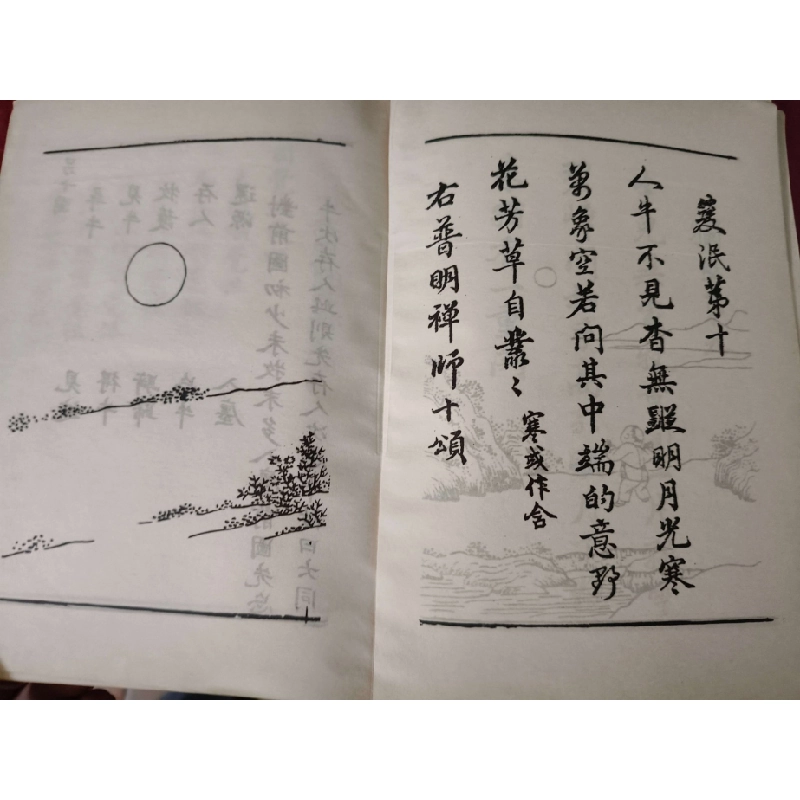 雙泯第十
人牛不見杳無蹤明月光寒
萬象空若問其中端的意野
花芳草自叢〻寒或作含
右普明禪師十頌